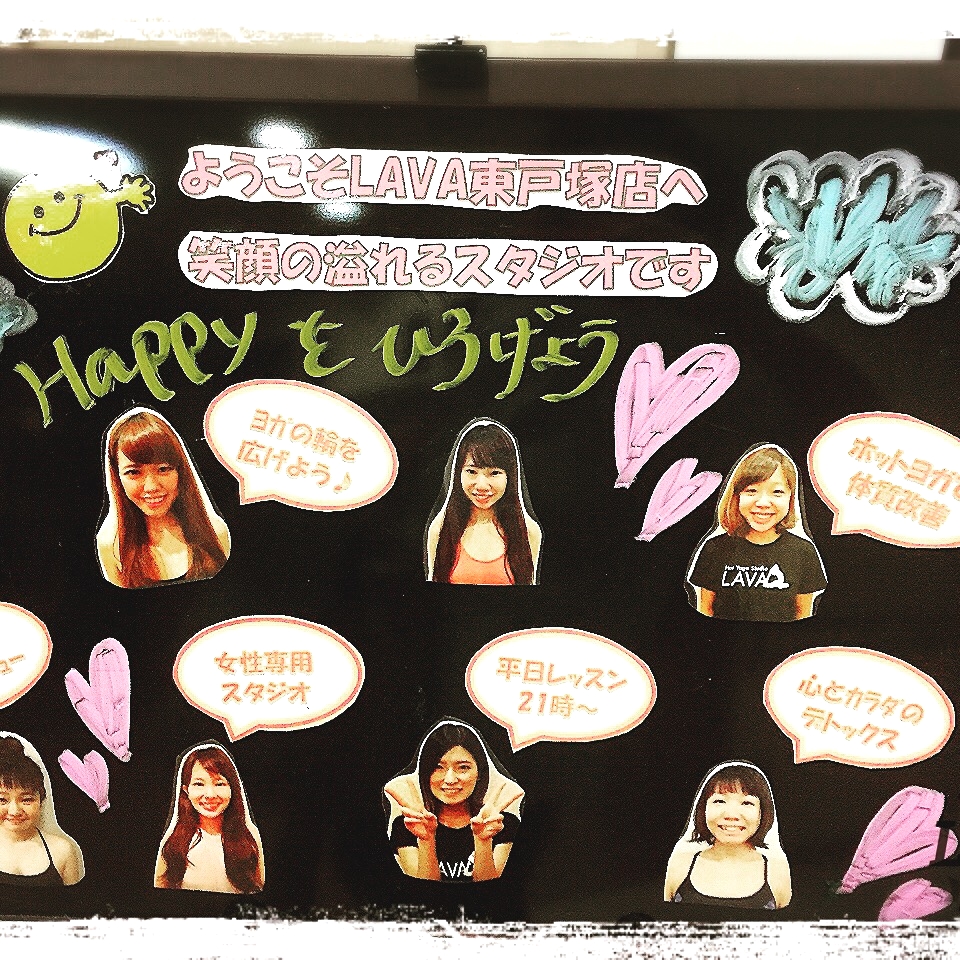 ようこそLAVA東戸塚店へ
笑顔の溢れるスタジオです
Happy を ひろげよう
ヨガの輪を
広げよう♪
ホットヨガで
体質改善
Hot Yoga Studio
LAVA
ュー
女性専用
スタジオ
平日レッスン
21時～
心とカラダの
デトックス
LAVA